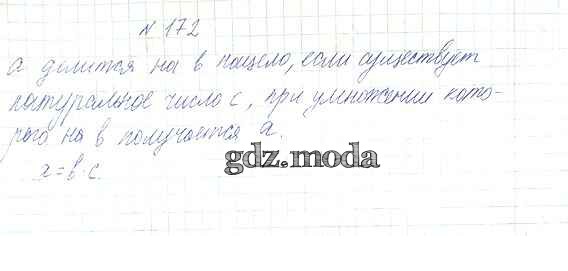 № 172
а делится на в нацело, если существует
натуральное число с, при умножении кото-
рого на в получается а.
gdz.moda
а = в · с.